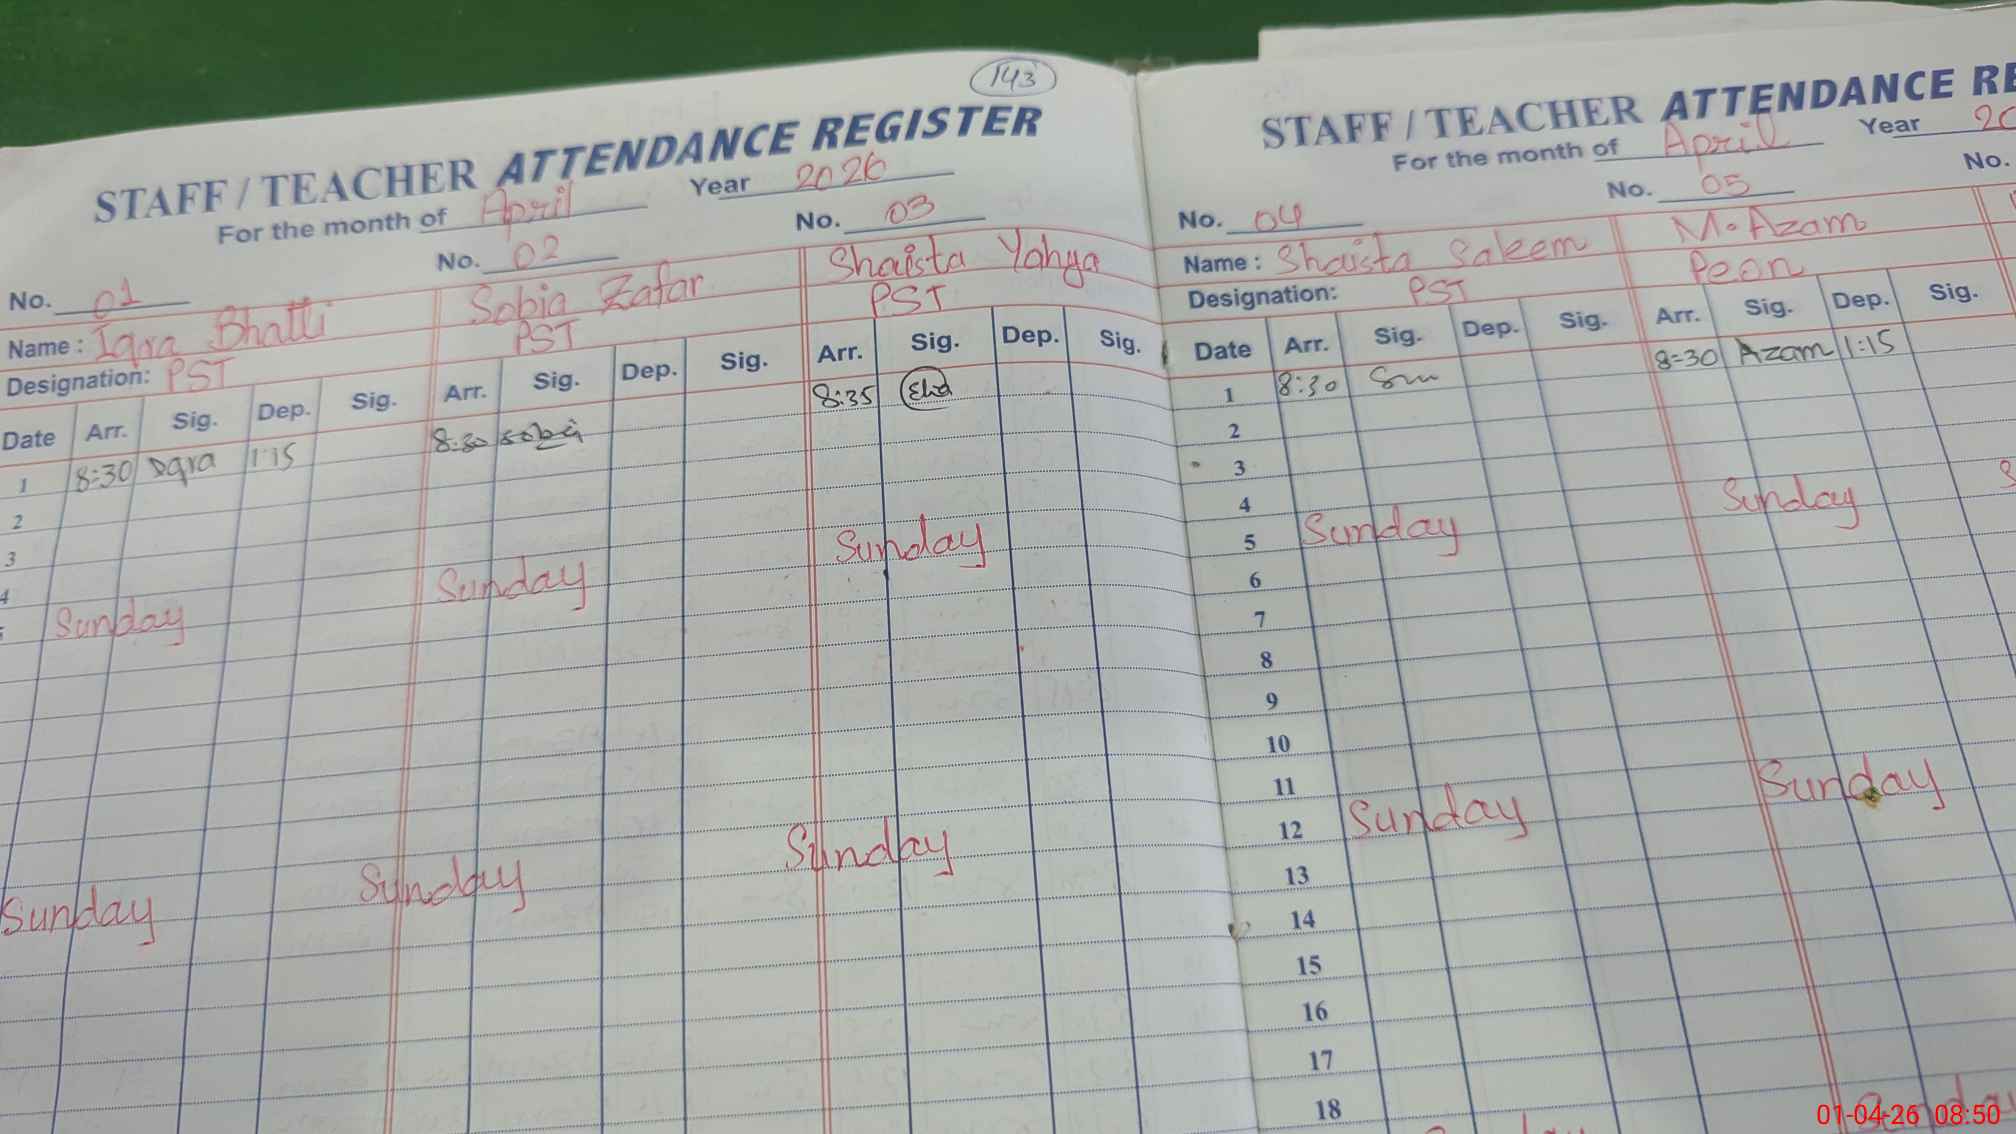 143
STAFF / TEACHER ATTENDANCE REGISTER
For the month of April Year 2026
No. 01 No. 02 No. 03
Name : Iqra Bhatti Sobia Zafar Shaista Yahya
Designation: PST PST PST
Date Arr. Sig. Dep. Sig. Arr. Sig. Dep. Sig. Arr. Sig. Dep. Sig.
1 8:30 Iqra 1:15 8:30 Sobia 8:35
2
3
4
Sunday Sunday Sunday
Sunday Sunday Sunday
STAFF / TEACHER ATTENDANCE RE
For the month of April Year 20
No. 04 No. 05 No.
Name : Shaista Saleem M. Azam
Designation: PST Peon
Date Arr. Sig. Dep. Sig. Arr. Sig. Dep. Sig.
1 8:30 8:30 Azam 1:15
2
3
4
5 Sunday Sunday
6
7
8
9
10
11
12 Sunday Sunday
13
14
15
16
17
18
Sunday
01-04-26 08:50